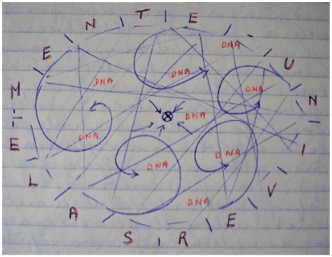 UNIVERSALEMENTE
DNA
DNA
DNA
DNA
DNA
DNA
DNA
DNA
DNA